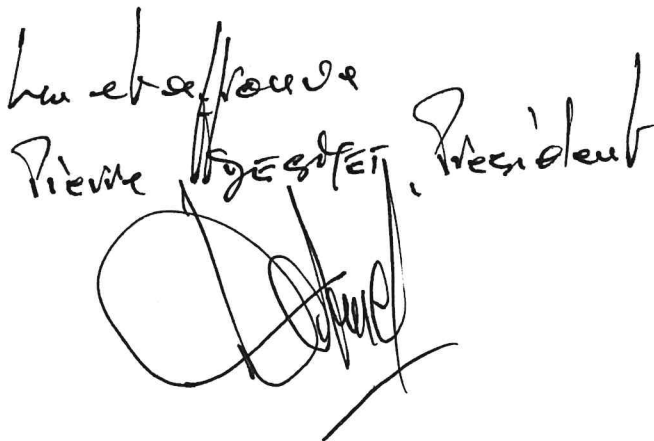 Lu et approuvé
Pierre DESMET, Président